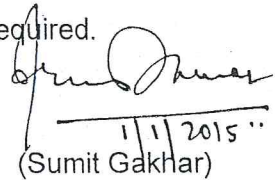 required.
1/1/2015"
(Sumit Gakhar)